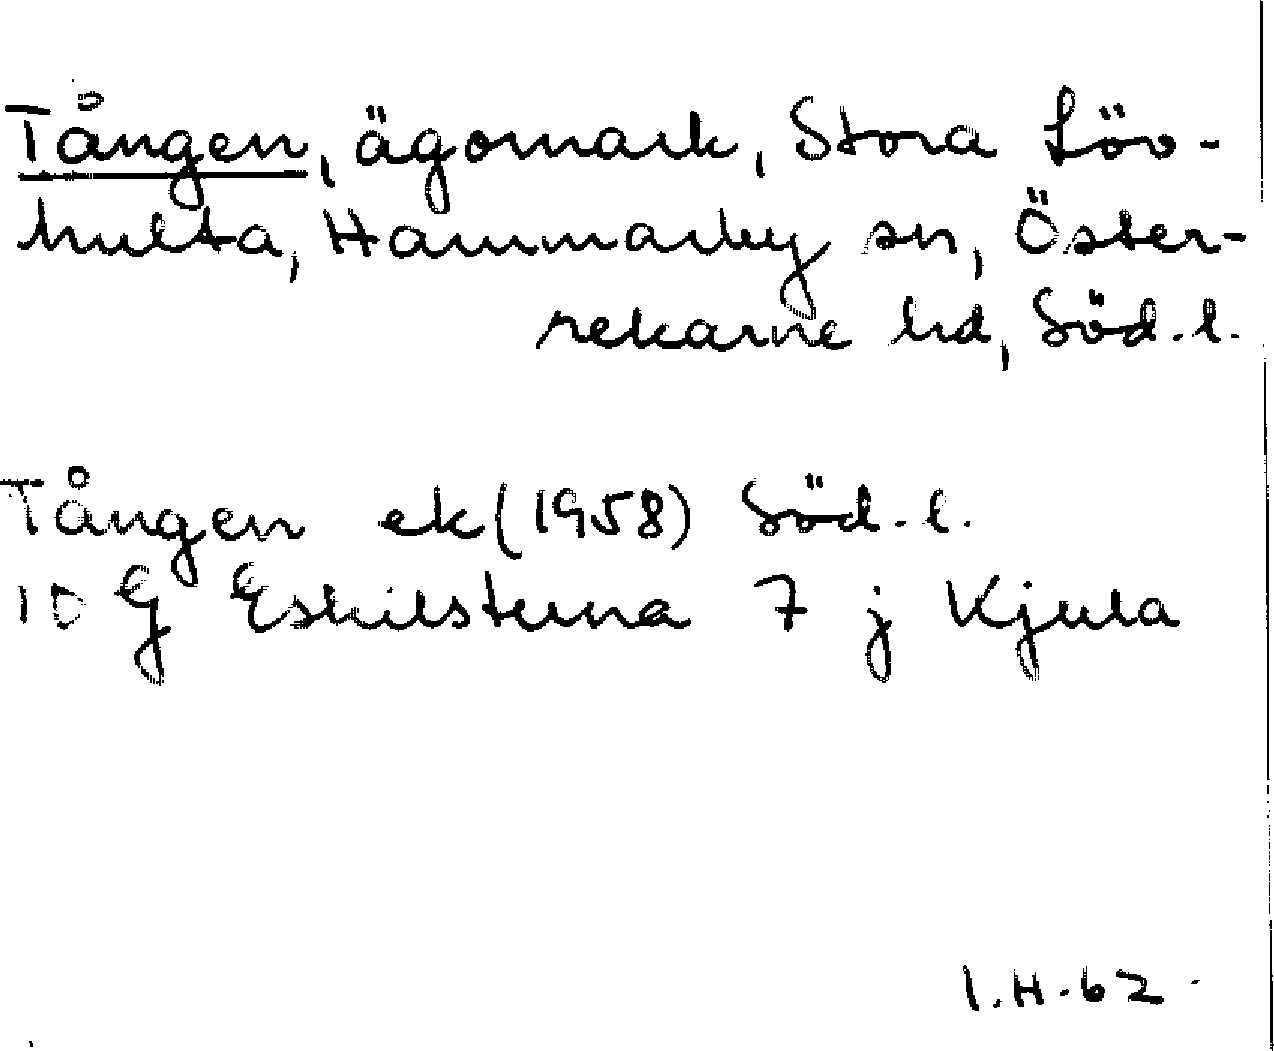 Tången, ägomark, Stora Löv-
hulta, Hammarby sn, Öster-
rekarne hd, Söd.l.
Tången ek (1958) Söd.l.
10 G Eskilstuna 7 j Kjula
I.H.62